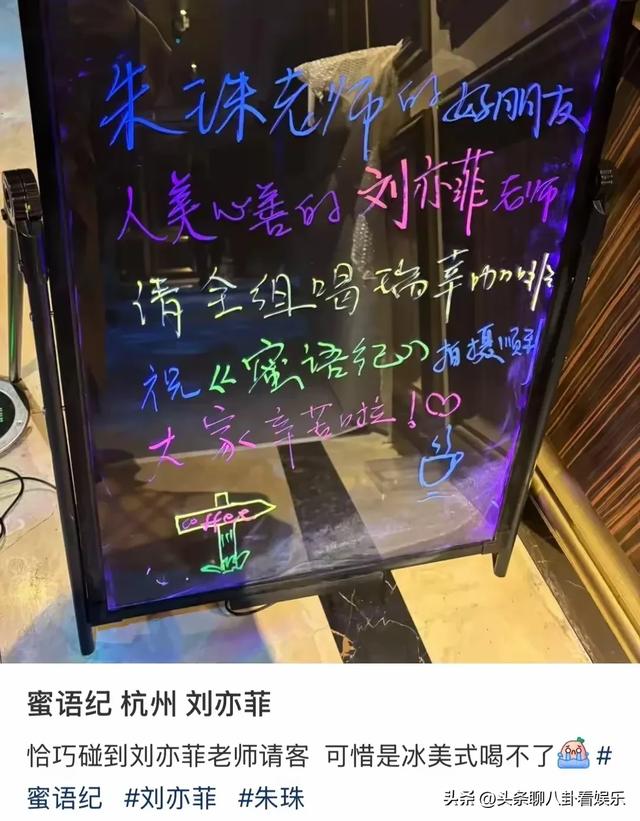 朱珠老师的好朋友
人美心善的刘亦菲老师
请全组喝瑞幸咖啡
祝《蜜语纪》拍摄顺利
大家辛苦啦！♡
coffee
蜜语纪 杭州 刘亦菲
恰巧碰到刘亦菲老师请客 可惜是冰美式喝不了 #
蜜语纪 #刘亦菲 #朱珠
头条 @头条聊八卦看娱乐